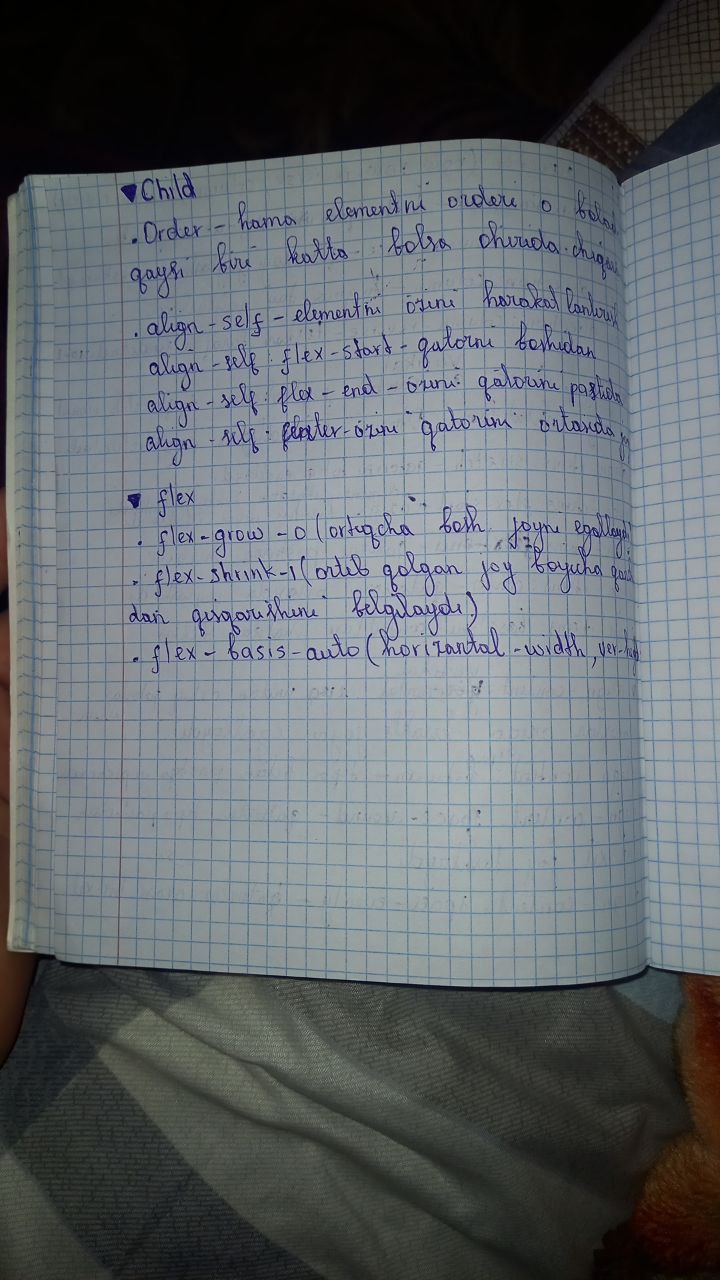 ▼Child
. Order - hama elementni orderi 0 bolad
qaysi biri katta bolsa ohirida
. align-self - elementni ozini
align-self : flex-start - qatorni boshidan
align-self : flex-end - ozini qatorini pastida
align-self : center - ozini qatorini ortasida
▼ flex
. flex-grow - 0 (ortiqcha bosh joyni egallaydi
. flex-shrink - 1 (ortib qolgan joy boyicha
dan qisqarishini belgilaydi)
. flex-basis-auto (horizantal-width, ver-